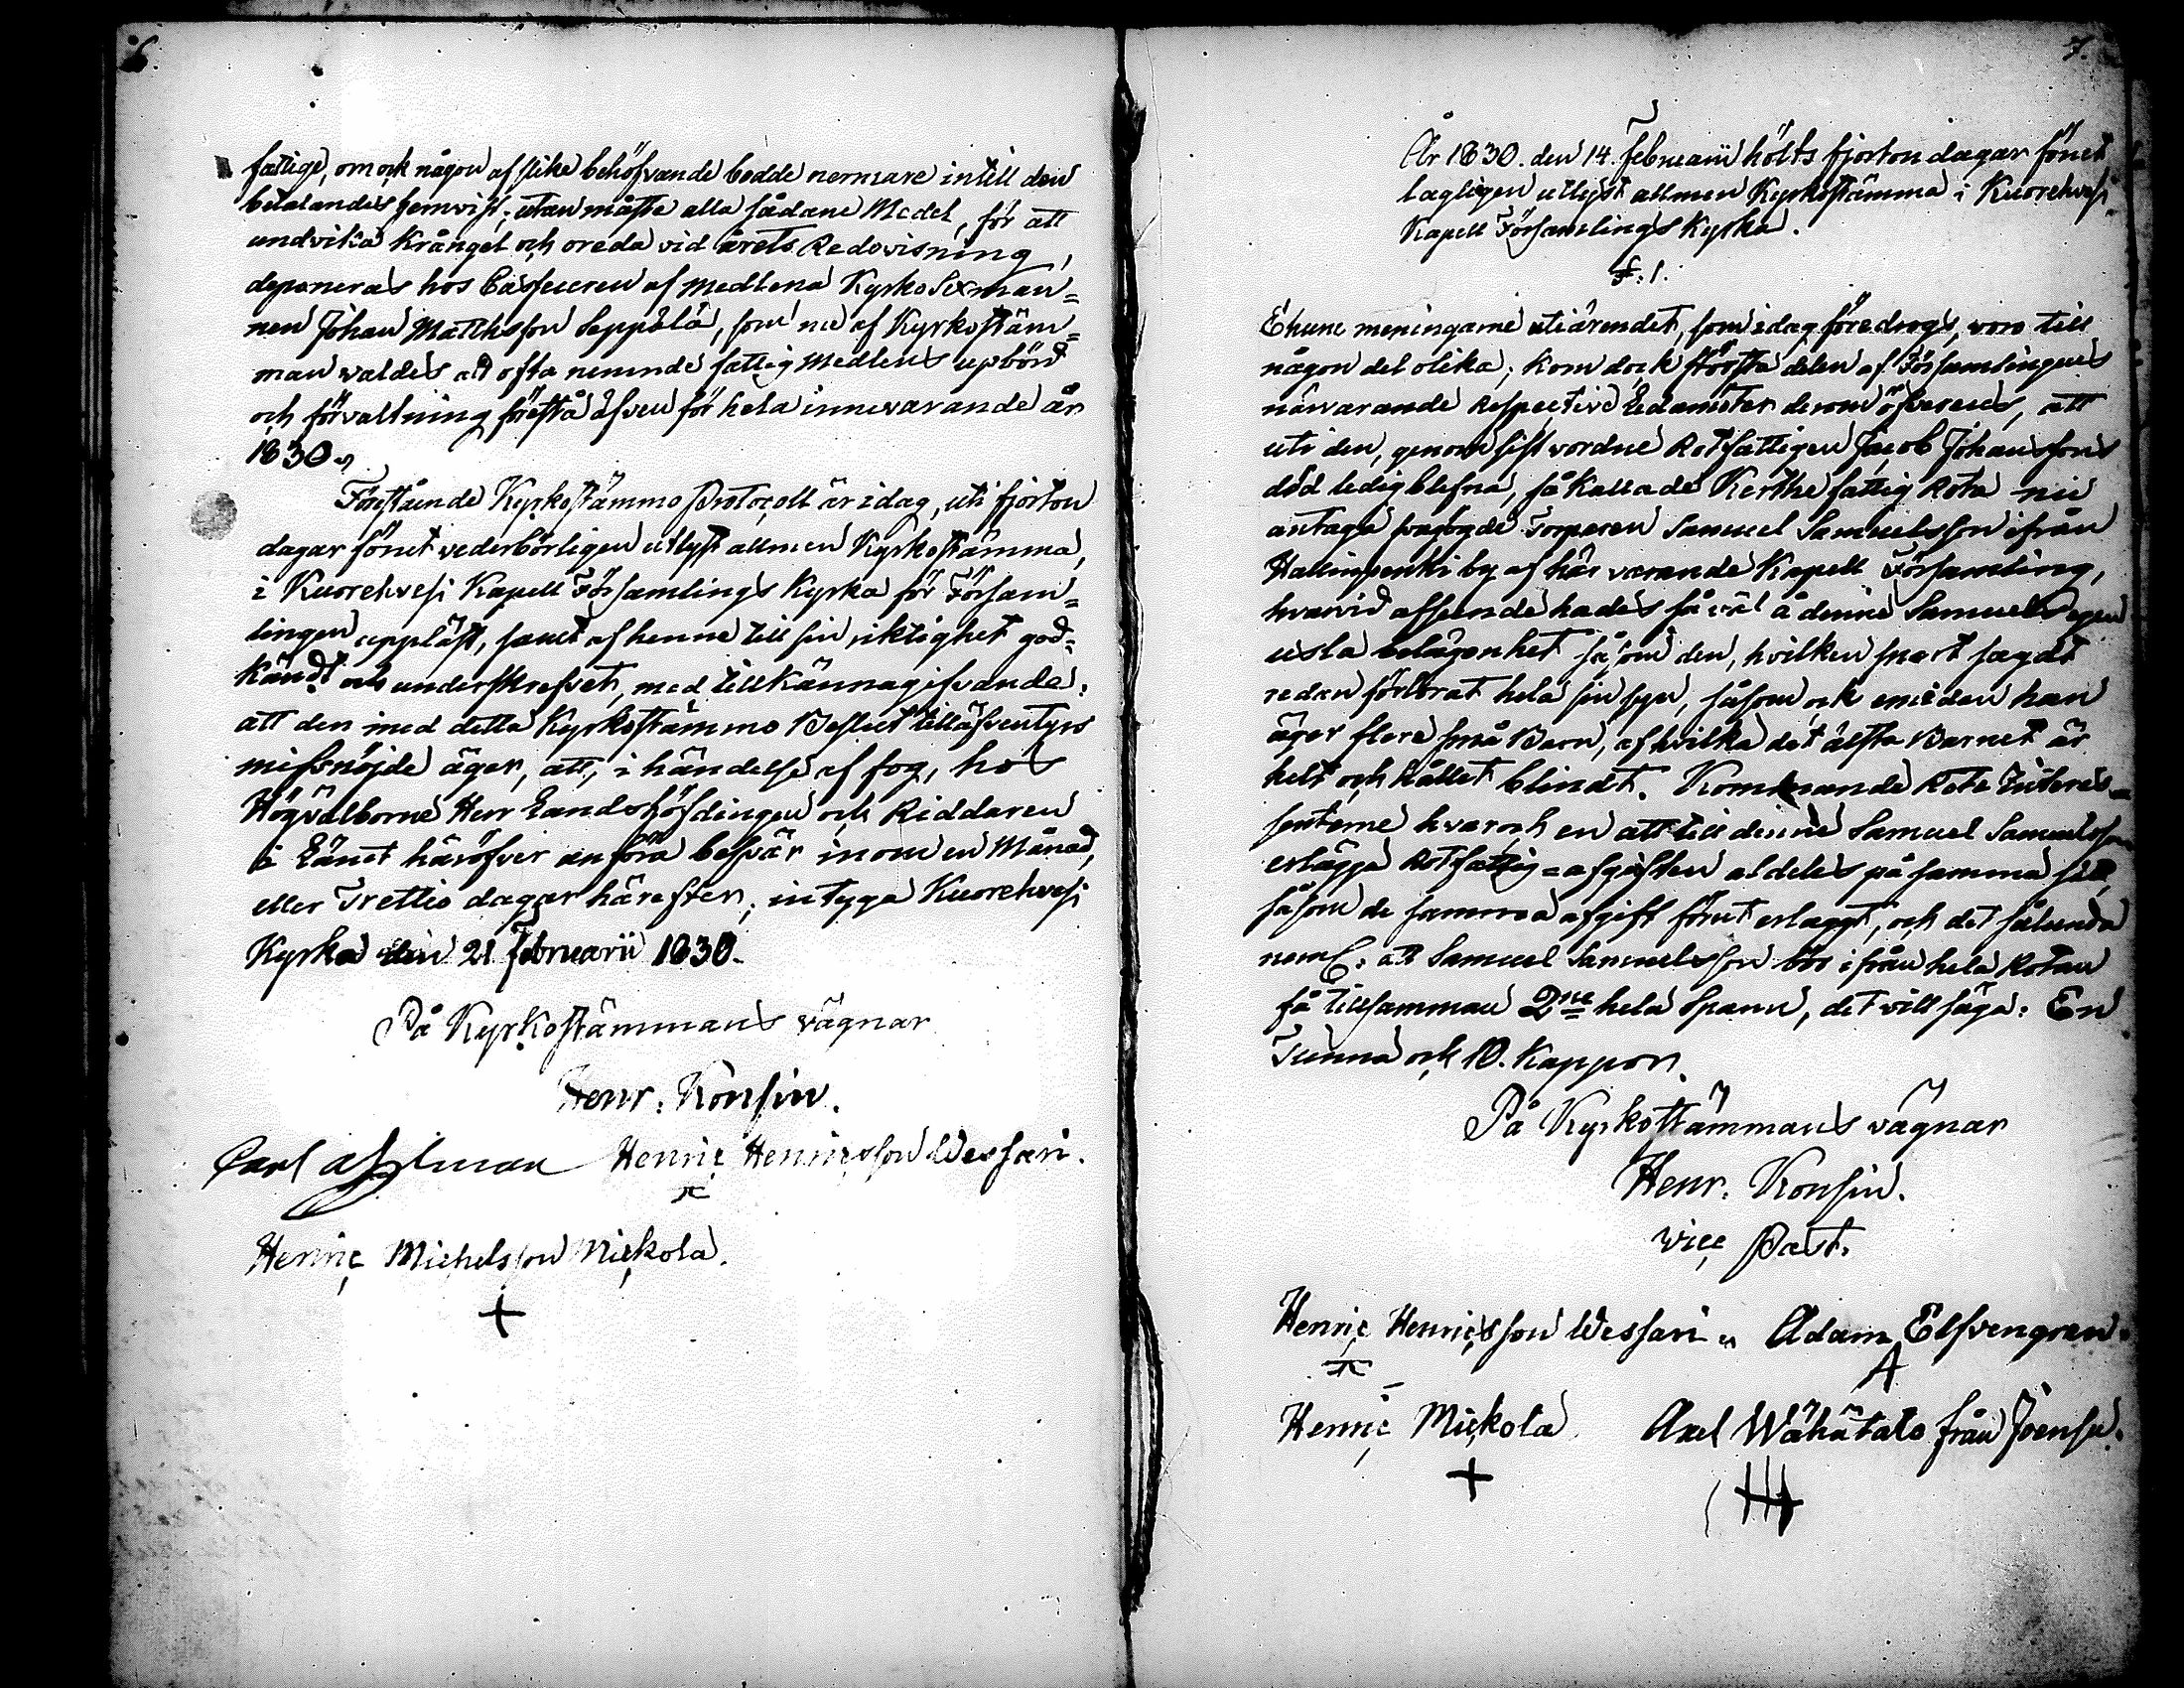 6.
fattige, om ock någon af slike behöfvande bodde nermare intill den
betalandes hemvist; utan måste alla sådane Medel, för att
undvika Krångel och oreda vid årets Redovisning,
deponeras hos Casseuren af medlena Kyrko Sexman=
nen Johan Matthsson Seppälä, som nu af Kyrkostäm=
man valdes att ofta nemnde fattig Medlens upbörd
och förvaltning förestå äfven för hela innevarande år
1830.
Förestående Kyrkostämmo Protocoll är idag, uti fjorton
dagar förut vederbörligen utlyst allmen Kyrkostämma,
i Kuorehvesi Kapell Församlings Kyrka för Försam=
lingen uppläst, samt af henne till sin riktighet god=
Kändt och underskrefvet, med tillkännagifvande:
att den med detta Kyrkostämmo Beslut tilläfventyrs
missnöjde äger, att, i händelse af fog, hos
Högvälborne Herr Landshöfdingen och Riddaren
i Länet häröfver anföra besvär inom en Månad,
eller Trettio dagar härefter; intyga Kuorehvesi
Kyrka den 21 Februarii 1830.
På Kyrkostämmans vägnar
Henr. Konsin.
Carl Ahlman Henric Henricsson Wessari.
Henric Michelsson Mickola.
+
7.
År 1830. den 14. Februarii hölts fjorton dagar förut
lagligen utlyst allmen Kyrkostämma i Kuorehvesi
Kapell Församlings Kyrka.
§. 1.
Ehuru meningarne uti ärendet, som idag föredrogs, voro till
någon del olika; kom dock största delen af Församlingens
närvarande Respective Ledamöter derom öfverens, att
uti den, genom sist vordne Rotfattigen Jacob Johanssons
död ledigblefna, så kallade Kerthe fattig Rota nu
antaga Torparen Samuel Samuelsson ifrån
Hallinpenki by af här varande Kapell Församling,
hvarvid afseende hades så väl å denne Samuels egen
usla belägenhet såsom den, hvilken snart sagdt
redan förlorat hela sin syn, såsom ock emedan han
äger flere små Barn, af hvilka det älsta Barnet är
helt och hållet blindt. Kommande Rote Interes=
senterne hvar och en att till denne Samuel Samuelsson
erlägga Rotfattig=afgiften aldeles på samma sätt,
såsom de samma afgift förut erlaggt, och det sålunda
neml: att Samuel Samuelsson bör ifrån hela Rotan
få tillsamman 2ne hela Spann, det vill säga: En
Tunna och 10. Kappor.
På Kyrkostämmans vägnar
Henr. Konsin.
vice Past.
Henric Henricsson Wessari. Adam Elfvengren.
A
Henric Mickola Axel Wähätalo från Joensu.
+